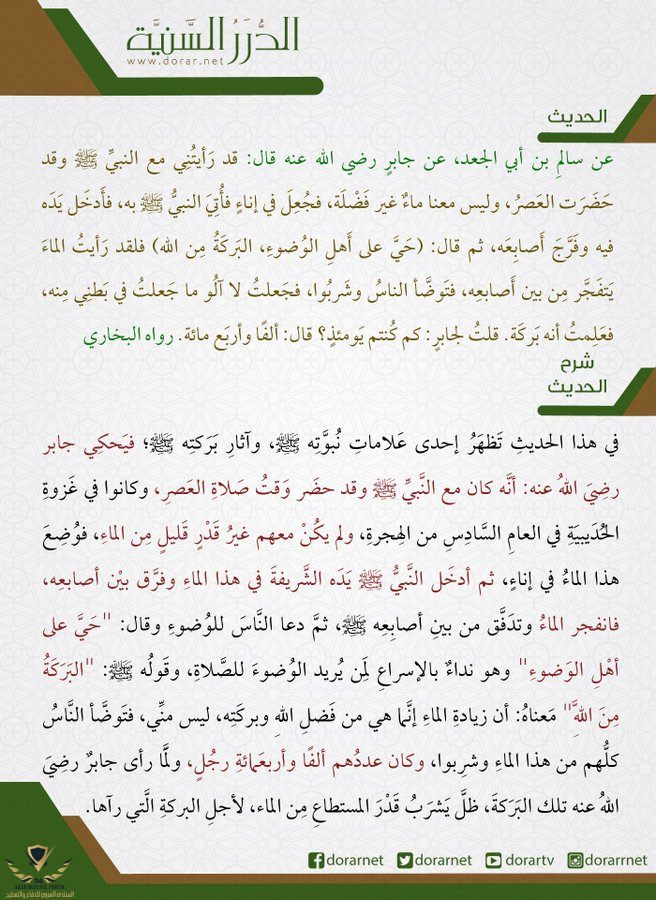 الدُّرَرُ السَّنِيَّة
www.dorar.net
الحديث
عن سالمِ بن أبي الجعد، عن جابرٍ رضي الله عنه قال: قد رَأيتُنِي مع النبيِّ ﷺ وقد
حَضَرَت العَصرُ، وليس معنا ماءٌ غير فَضْلَة، فجُعِلَ في إناءٍ فأُتِيَ النبيُّ ﷺ به، فأَدخل يَدَه
فيه وفَرَّجَ أَصابِعَه، ثم قال: (حَيَّ على أَهلِ الوُضوءِ، البَركَةُ مِن الله) فلقد رَأيتُ الماءَ
يَتفَجَّر مِن بين أَصابعِه، فتَوضَّأ الناسُ وشَربُوا، فجَعلتُ لا آلُو ما جَعلتُ في بَطنِي مِنه،
فعَلِمتُ أنه بَركَة. قلتُ لجابرٍ: كم كُنتم يَومئذٍ؟ قال: ألفًا وأربَع مائة. رواه البخاري
شرح
الحديث
في هذا الحديثِ تَظهَرُ إحدى عَلاماتِ نُبوَّتِه ﷺ، وآثارِ بَركتِه ﷺ؛ فيَحكِي جابر
رضِيَ اللهُ عنه: أنَّه كان مع النَّبيِّ ﷺ وقد حضَر وَقتُ صَلاةِ العَصرِ، وكانوا في غَزوةِ
الحُدَيبيَةِ في العامِ السَّادِسِ من الهجرةِ، ولم يكُنْ معهم غيرُ قَدْرٍ قَليلٍ مِن الماءِ، فوُضِعَ
هذا الماءُ في إناءٍ، ثم أدخَل النَّبيُّ ﷺ يَدَه الشَّريفةَ في هذا الماءِ وفرَّق بيْن أصابعِه،
فانفجر الماءُ وتدَفَّق من بينِ أصابِعِه ﷺ، ثمَّ دعا النَّاسَ للوُضوءِ وقال: "حَيَّ على
أهْلِ الوَضوءِ" وهو نداءٌ بالإسراعِ لِمَن يُريد الوُضوءَ للصَّلاةِ، وقَولُه ﷺ: "البَرَكَةُ
مِنَ اللهِ" مَعناهُ: أن زيادةِ الماءِ إنَّما هي من فَضلِ اللهِ وبركتِه، ليس منِّي، فتَوضَّأ النَّاسُ
كلُّهم من هذا الماءِ وشرِبوا، وكان عددُهم ألفًا وأربعَمائةِ رجُلٍ، ولَمَّا رأى جابرٌ رضِيَ
اللهُ عنه تلك البَرَكَةَ، ظلَّ يَشرَبُ قَدْرَ المستطاعِ مِن الماء، لأجلِ البركةِ الَّتي رآها.
dorarnet dorarnet dorartv dorarrnet
ARAB DEFENSE FORUM
المنتدى العربي للدفاع والتسليح